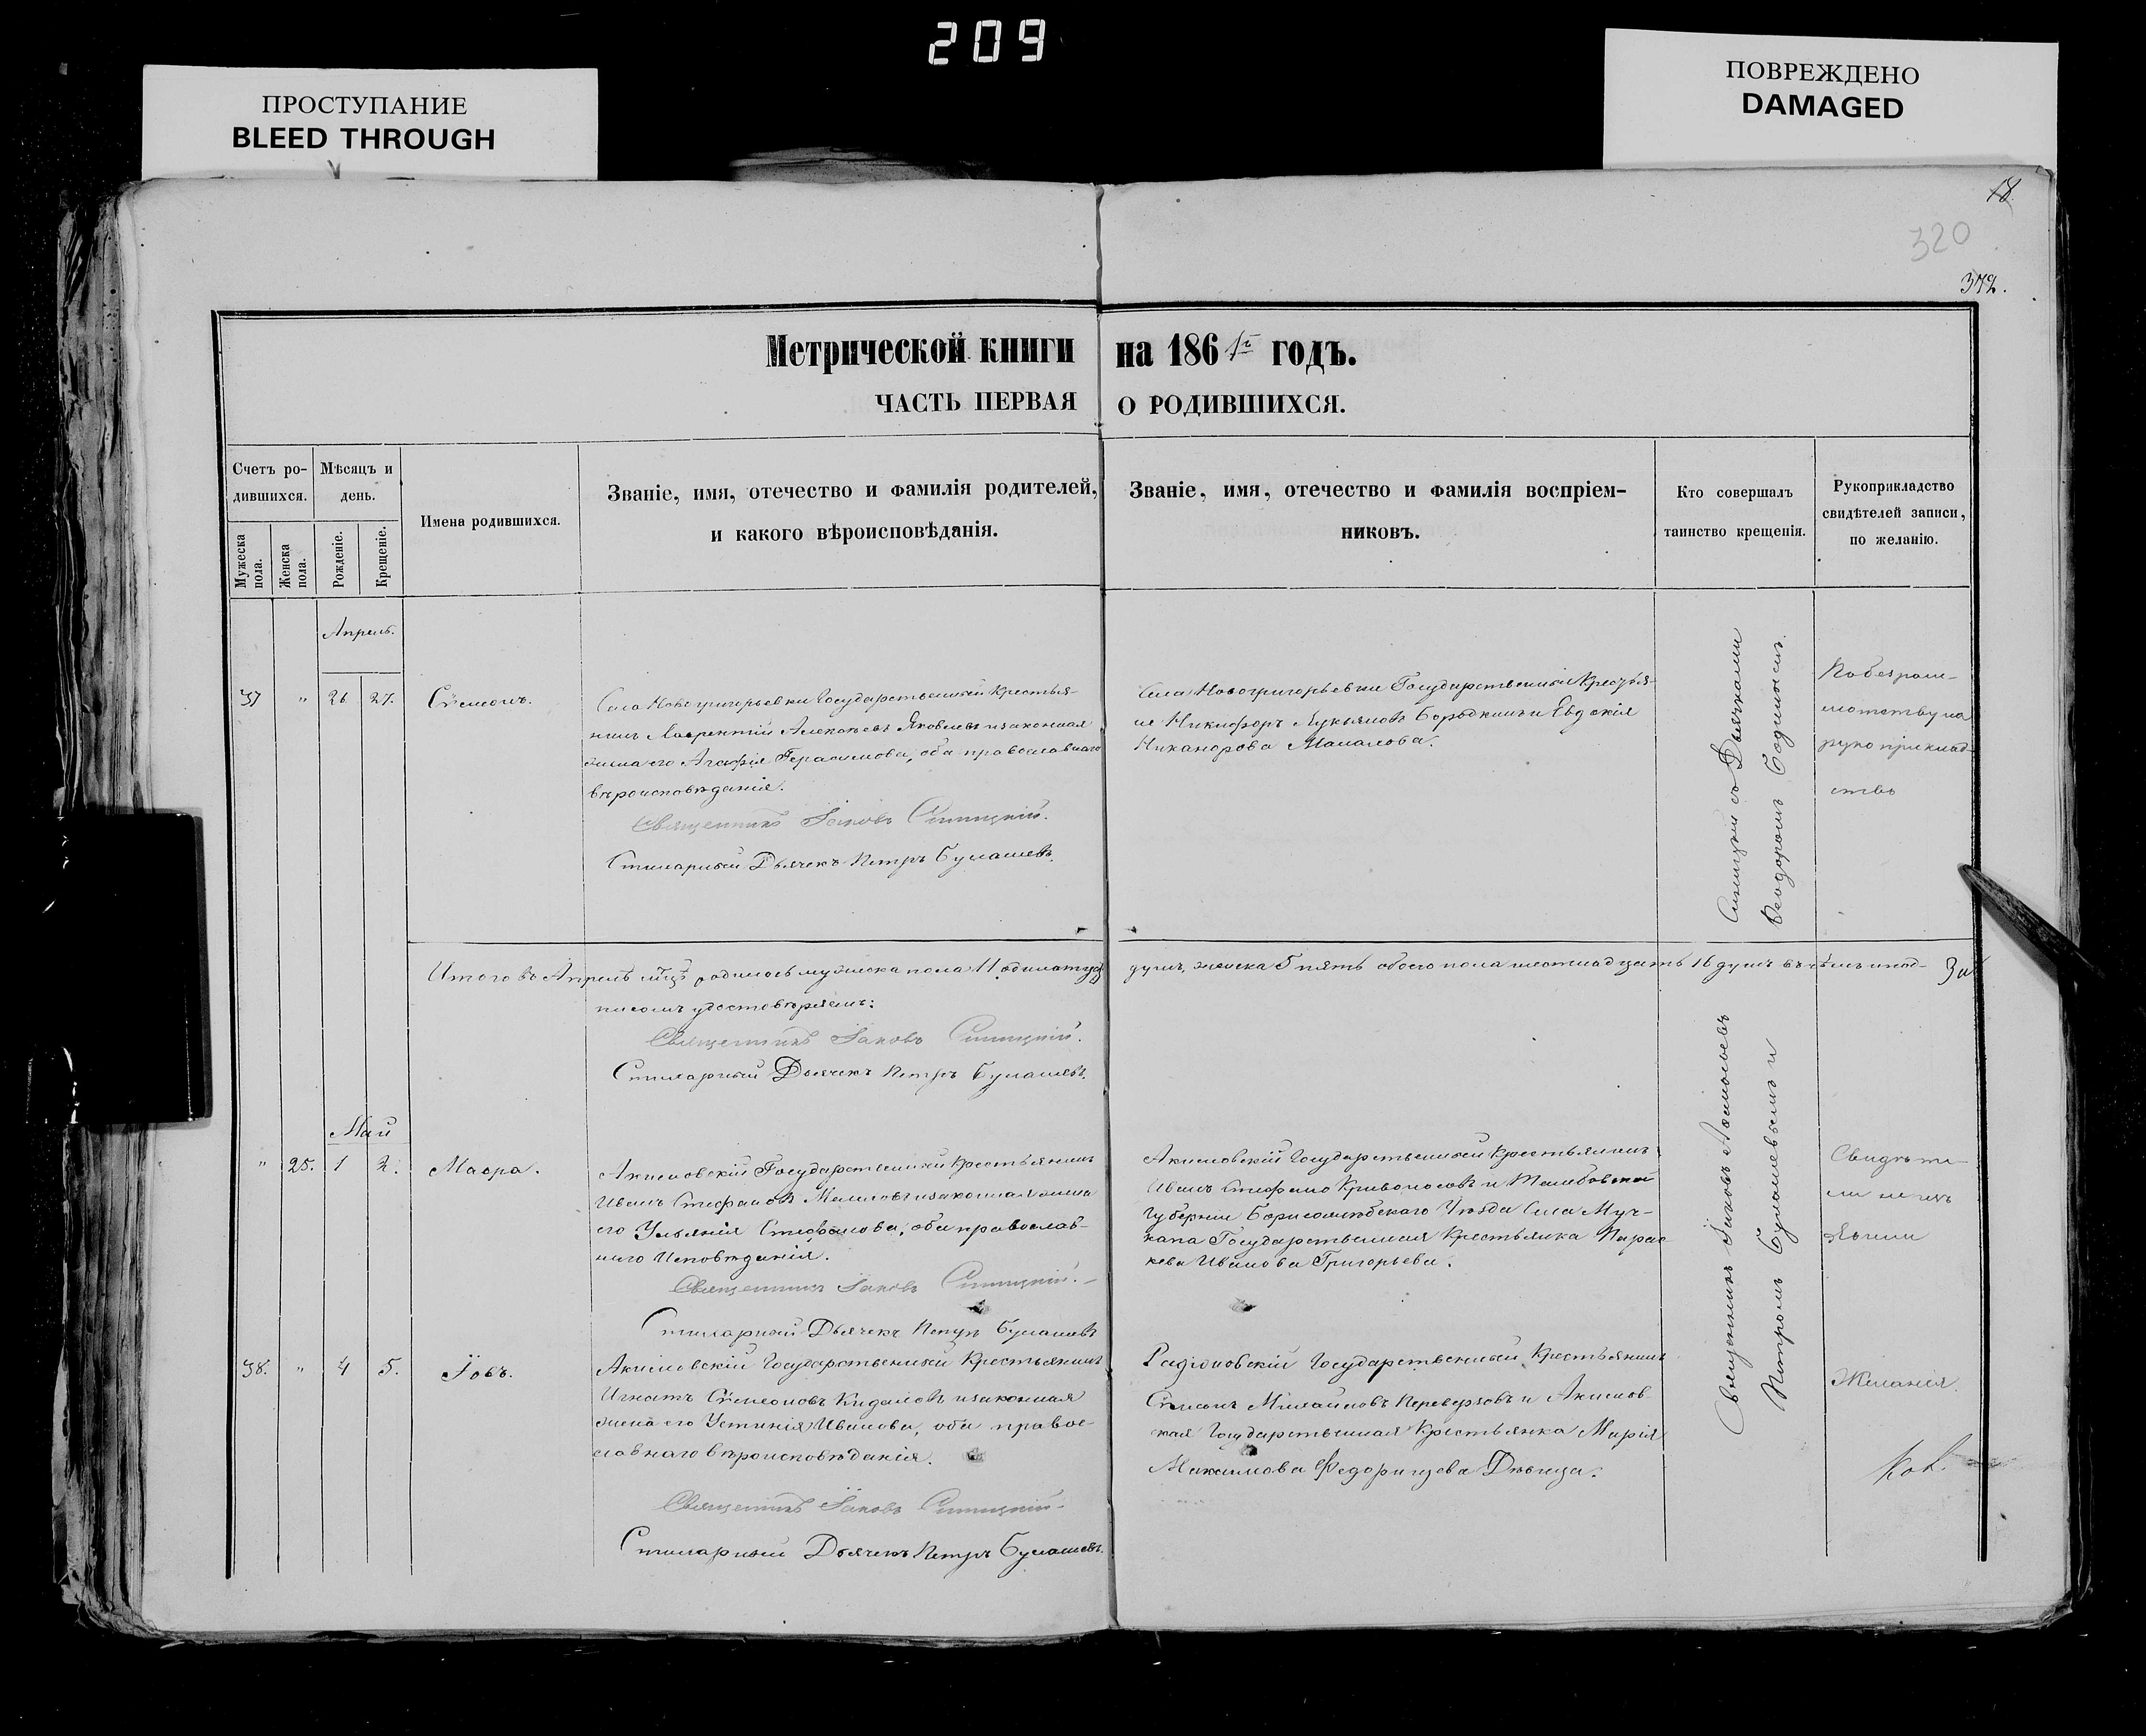 209
ПРОСТУПАНИЕ
BLEED THROUGH
ПОВРЕЖДЕНО
DAMAGED
18
320
372.
Метрической книги на 1861й годъ.
ЧАСТЬ ПЕРВАЯ О РОДИВШИХСЯ.
Счетъ ро-
дившихся.
Мужеска
пола.
Женска
пола.
Мѣсяцъ и
день.
Рожденіе.
Крещеніе.
Имена родившихся.
Званіе, имя, отечество и фамилія родителей,
и какого вѣроисповѣданія.
Званіе, имя, отечество и фамилія воспріем-
никовъ.
Кто совершалъ
таинство крещенія.
Рукоприкладство
свидѣтелей записи,
по желанію.
Апрель.
37 " 26 27. Сѵмеонъ.
Села Новогригорьевки Государственный Крестья-
нинъ Лаврентій Алексѣевъ Яковлевъ и законная
жена его Агафія Герасимова, оба православнаго
вѣроисповѣданія.
Священникъ Іаковъ Синицкій.
Стихарный Дьячекъ Петръ Булашевъ.
Села Новогригорьевки Государственный Крестья-
не Никифоръ Лукьяновъ Бородкинъ и Евдокія
Никанорова Мамалова.
Синицкій съ Дьячками
Феодоромъ
По безгра-
мотству на
рукоприклад-
ство
Итого въ Апрелѣ мцѣ родилось мужеска пола 11 одинатцать
душъ, женска 5 пять обоего пола шестнадцать 16 душъ въ чемъ и под-
писомъ удостовѣряемъ:
Священникъ Іаковъ Синицкій.
Стихарный Дьячекъ Петръ Булашевъ.
Май
" 25. 1 2. Мавра.
Акимовскій Государственный Крестьянинъ
Иванъ Стефановъ и законная жена
его Ульянія Стефанова, оба православ-
наго Исповѣданія.
Священникъ Іаковъ Синицкій.
Стихарный Дьячекъ Петръ Булашевъ
Акимовскій Государственный Крестьянинъ
Иванъ Стефановъ Кривоносовъ и Тамбовской
Губерніи Борисоглѣбскаго Уѣзда Села Муч-
капа Государственная Крестьянка Парас-
кева Иванова Григорьева.
Священникъ Іаковъ
Петромъ Булашевымъ и
Свидѣте-
ли не изъ
явили
38. " 4 5. Іовъ.
Акимовскій Государственный Крестьянинъ
Игнатъ Сѵмеоновъ Кидаловъ и законная
жена его Устинія Иванова, оба право-
славнаго вѣроисповѣданія.
Священникъ Іаковъ Синицкій.
Стихарный Дьячекъ Петръ Булашевъ.
Радіоновскій Государственный Крестьянинъ
Сѵмеонъ Михайловъ Переверзовъ и Акимов-
кая Государственная Крестьянка Марія
Максимова Федорищева Дѣвица.
Желанія.